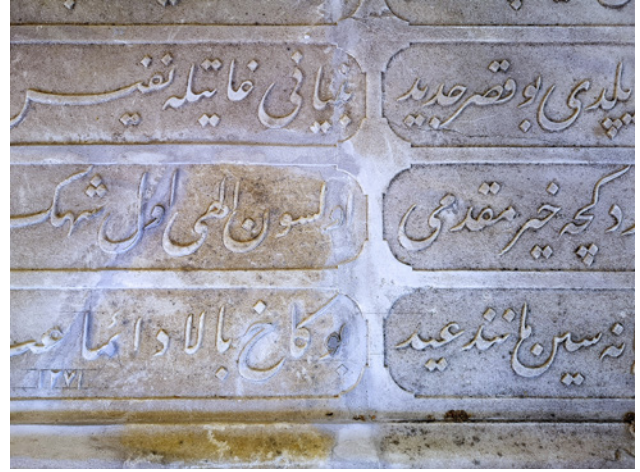 پلدی بو قصر جدید بنیانی غایتله نفیس
ردکچه خیر مقدمی اولسون الهی اول شهک
نه سین مانند عید بو کاخ بالا دائما
۱۲۷۱